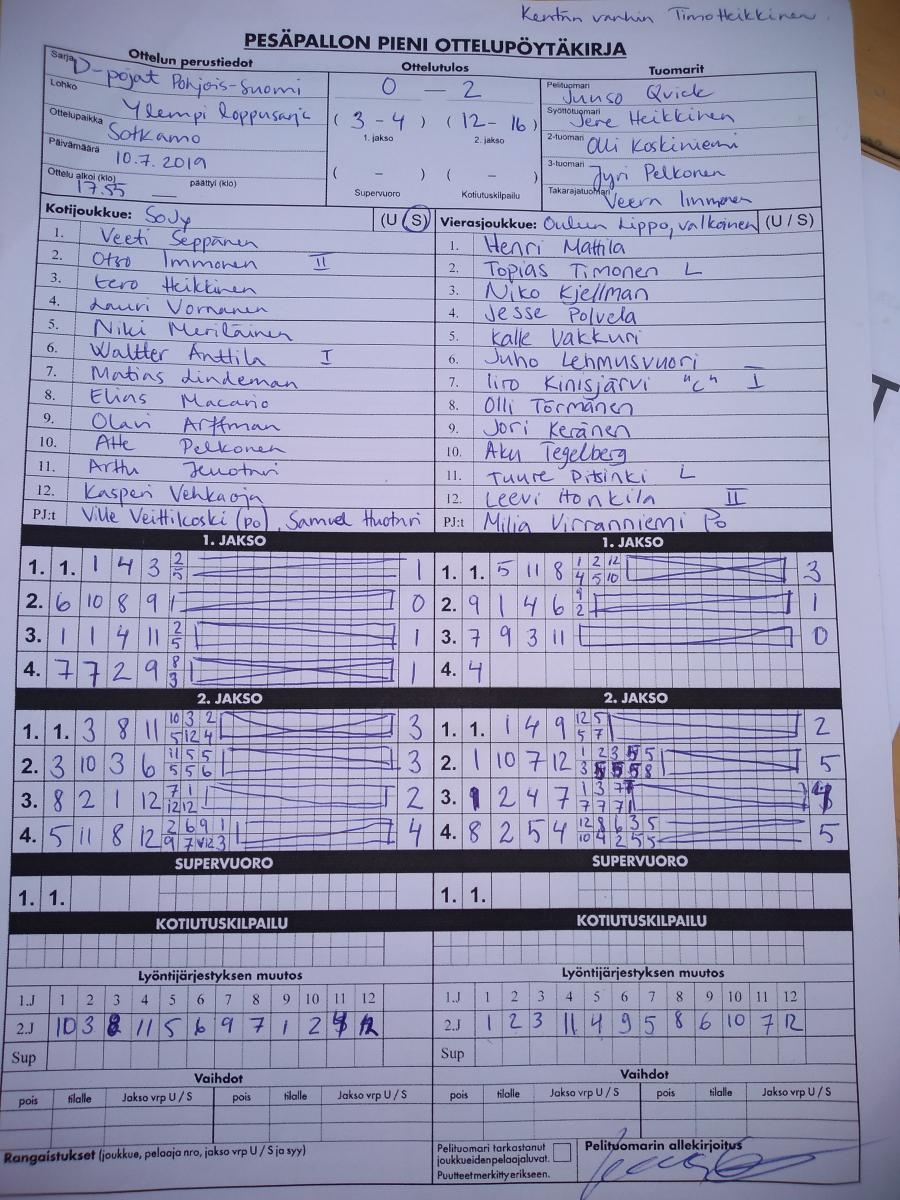 Kentän vanhin Timo Heikkinen.
PESÄPALLON PIENI OTTELUPÖYTÄKIRJA
Ottelun perustiedot
Sarja D-pojat Pohjois-Suomi
Lohko Ylempi loppusarja
Ottelupaikka Sotkamo
Päivämäärä 10.7.2019
Ottelu alkoi (klo) 17.55 päättyi (klo)
Ottelutulos
0 — 2
( 3 - 4 ) ( 12 - 16 )
1. jakso 2. jakso
( - ) ( - )
Supervuoro Kotiutuskilpailu
Tuomarit
Pelituomari Juuso Quick
Syöttötuomari Jere Heikkinen
2-tuomari Olli Koskiniemi
3-tuomari Jyri Pelkonen
Takarajatuomari Veera Immonen
Kotijoukkue: SoJy (U / S)
1. Veeti Seppänen
2. Otso Immonen II
3. Eero Heikkinen
4. Lauri Vornanen
5. Niki Meriläinen
6. Waltter Anttila I
7. Matias Lindeman
8. Elias Macario
9. Olavi Arffman
10. Atte Pelkonen
11. Arttu
12. Kasperi Vehkaoja
PJ:t Ville Veittikoski (po), Samuel Huotari
Vierasjoukkue: Oulun Lippo, valkoinen (U / S)
1. Henri Mattila
2. Topias Timonen L
3. Niko Kjellman
4. Jesse Polvela
5. Kalle Vakkuri
6. Juho Lehmusvuori
7. Iiro Kinisjärvi "C" I
8. Olli Törmänen
9. Jori Keränen
10. Aku Tegelberg
11. Tuure Pitsinki L
12. Leevi Honkila II
PJ:t Milja Virranniemi Po
1. JAKSO
1. 1. 1 4 3 2/5 1
2. 6 10 8 9 1 0
3. 1 1 4 11 2/5 1
4. 7 7 2 9 8/3 1
1. JAKSO
1. 1. 5 11 8 1/4 2/5 12/10 3
2. 9 1 4 6 9/2 1
3. 7 9 3 11 0
4. 4
2. JAKSO
1. 1. 3 8 11 10/5 3/12 2/4 3
2. 3 10 3 6 11/5 5/5 5/6 3
3. 8 2 1 12 7/12 1/12 2
4. 5 11 8 12 2/9 6/7 9/12 1/3 4
2. JAKSO
1. 1. 1 4 9 12/5 5/7 2
2. 1 10 7 12 1/3 2 3 5 5/8 5
3. 2 4 7 1/7 3/7 7
4. 8 2 5 4 12/10 8/4 6/2 3/5 5/5 5
SUPERVUORO
1. 1.
SUPERVUORO
1. 1.
KOTIUTUSKILPAILU
KOTIUTUSKILPAILU
Lyöntijärjestyksen muutos
1.J 1 2 3 4 5 6 7 8 9 10 11 12
2.J 10 3 8 11 5 6 9 7 1 2 4 12
Sup
Lyöntijärjestyksen muutos
1.J 1 2 3 4 5 6 7 8 9 10 11 12
2.J 1 2 3 11 4 9 5 8 6 10 7 12
Sup
Vaihdot
pois tilalle Jakso vrp U / S pois tilalle Jakso vrp U / S
Vaihdot
pois tilalle Jakso vrp U / S pois tilalle Jakso vrp U / S
Rangaistukset (joukkue, pelaaja nro, jakso vrp U / S ja syy)
Pelituomari tarkastanut
joukkueiden pelaajaluvat.
Puutteet merkitty erikseen.
Pelituomarin allekirjoitus